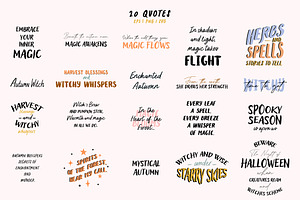 20 QUOTES
EPS | PNG | SVG
EMBRACE
YOUR
INNER
MAGIC
Beneath the autumn moon
MAGIC AWAKENS
When the cold comes
MAGIC FLOWS
In shadow
and light,
magic takes
FLIGHT
HERBS
AND
SPELLS
STORIES TO TELL
Autumn Witch
HARVEST BLESSINGS
and
WITCHY WHISPERS
Enchanted
Autumn
From the earth
SHE DRAWS HER STRENGTH
WITCHY
HARVEST
and
WITCHY
Witch's Brew
AND PUMPKIN STEW,
Warmth and magic
IN ALL WE DO.
In the
Heart of the
Forest
EVERY LEAF
A SPELL
EVERY BREEZE
A WHISPER
OF MAGIC
SPOOKY
SEASON
is upon us
AUTUMN WHISPERS
SECRETS OF
ENCHANTMENT
AND
WONDER
SPIRITS
OF THE FOREST
HEAR MY CALL
MYSTICAL
AUTUMN
WITCHY AND WISE
under
STARRY SKIES
BEWARE
The Night of
HALLOWEEN
WHEN
CREATURES ROAM
AND
WITCHES SCHEME